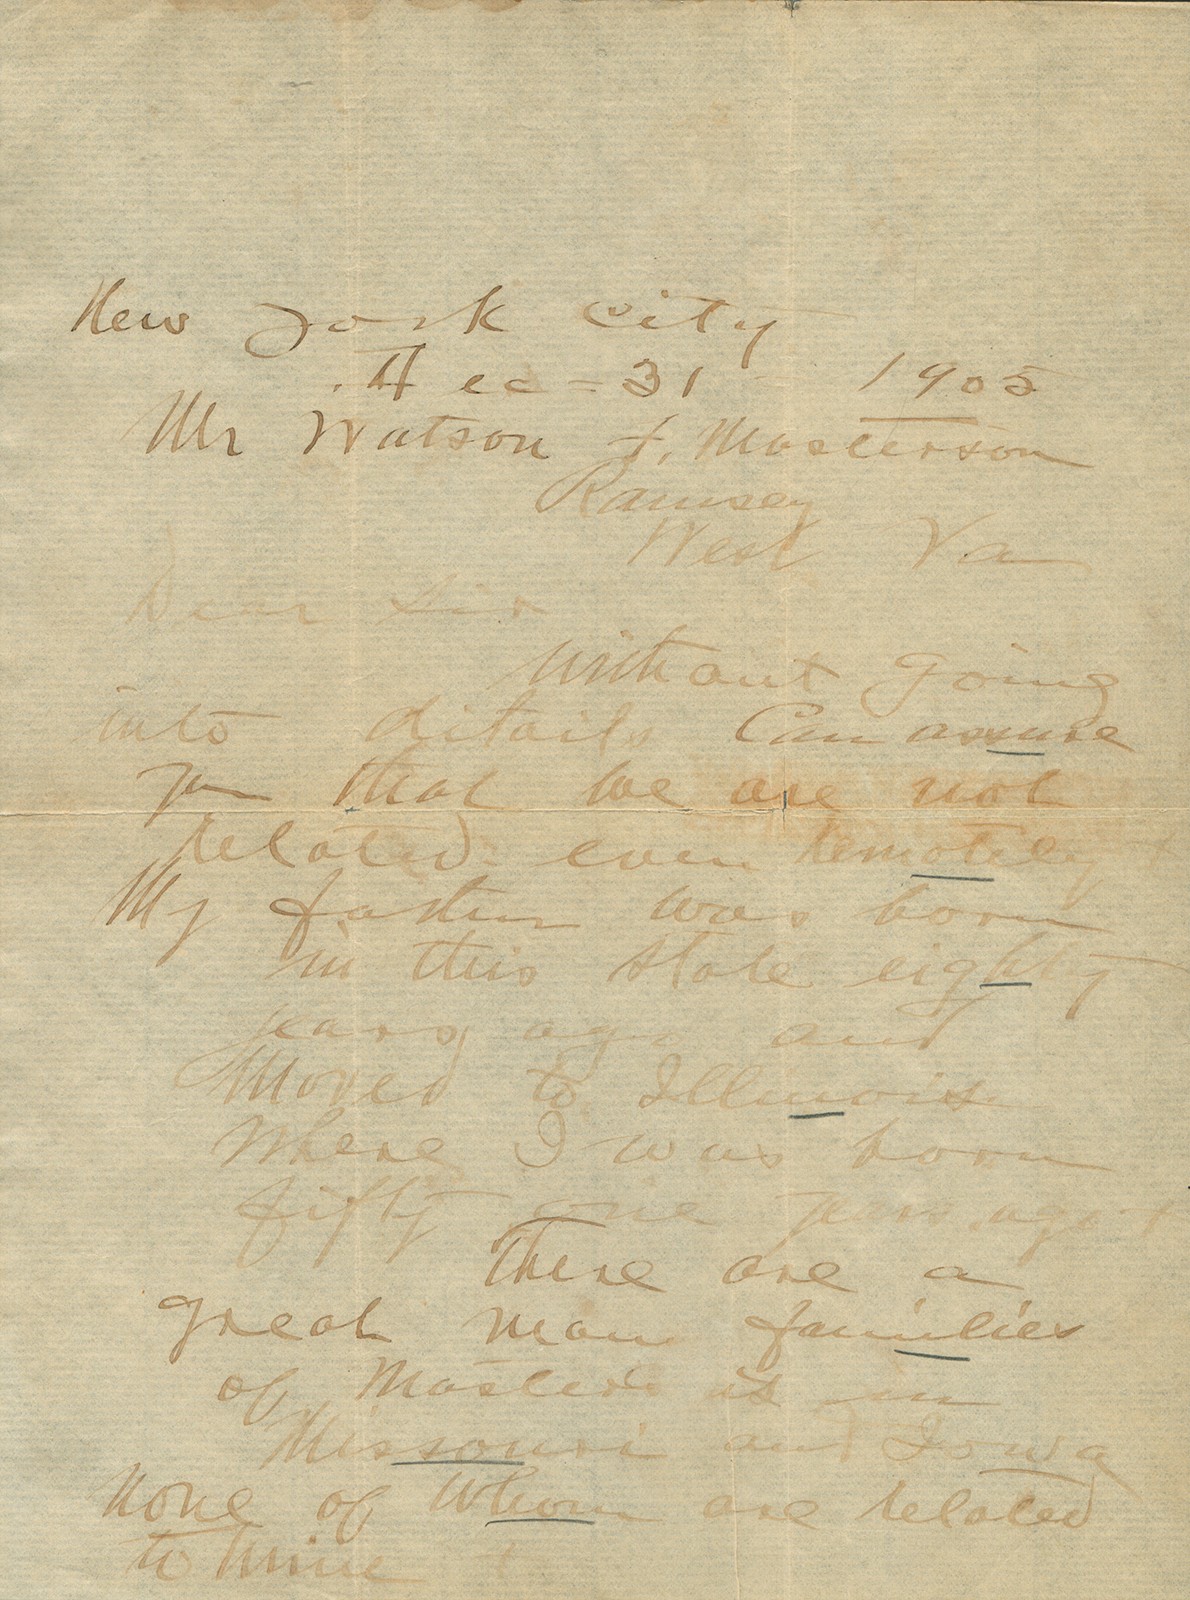 New York City
Dec - 31 - 1905
Mr Watson F. Masterson
Ramsey
West Va
Dear Sir
without going
into ditails Can assure
you that we are not
related even remotely +
My father was born
in this state eighty
years ago and
Moved to Illinois
Where I was born
fifty one years ago +
There are a
great man families
of Masterson in
Missouri and Iowa
None of Whom are related
to Mine +